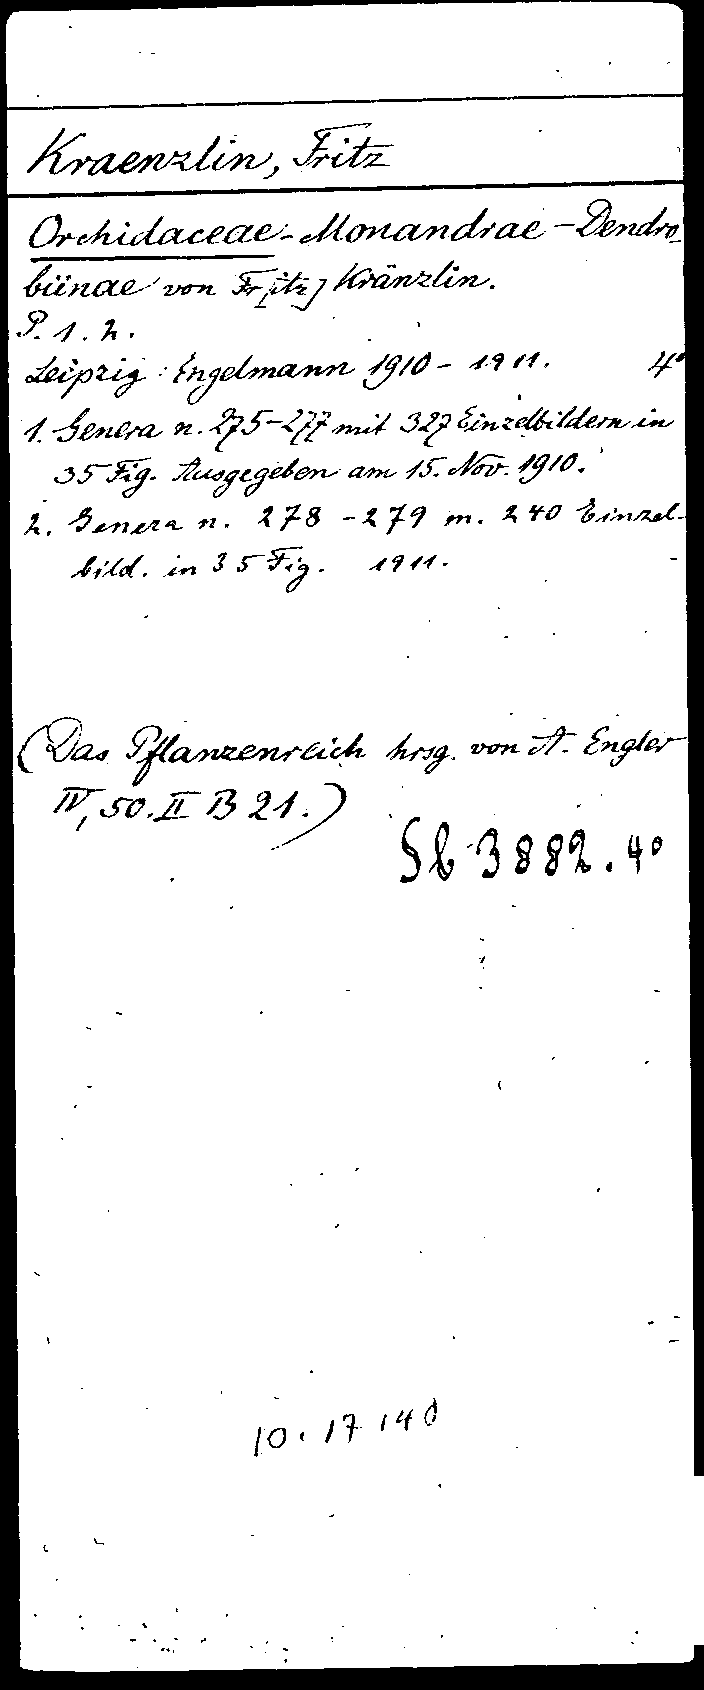 Kraenzlin, Fritz
Orchidaceae-Monandrae-Dendro-
biinae von Fr[itz] Kränzlin.
P. 1. 2.
Leipzig: Engelmann 1910-1911. 4°
1. Genera n. 275-277 mit 327 Einzelbildern in
35 Fig. Ausgegeben am 15. Nov. 1910.
2. Genera n. 278-279 m. 240 Einzel-
bild. in 35 Fig. 1911.
(Das Pflanzenreich hrsg. von A. Engler
IV, 50. II B 21.)
Sb 3882. 4°
10. 17 140